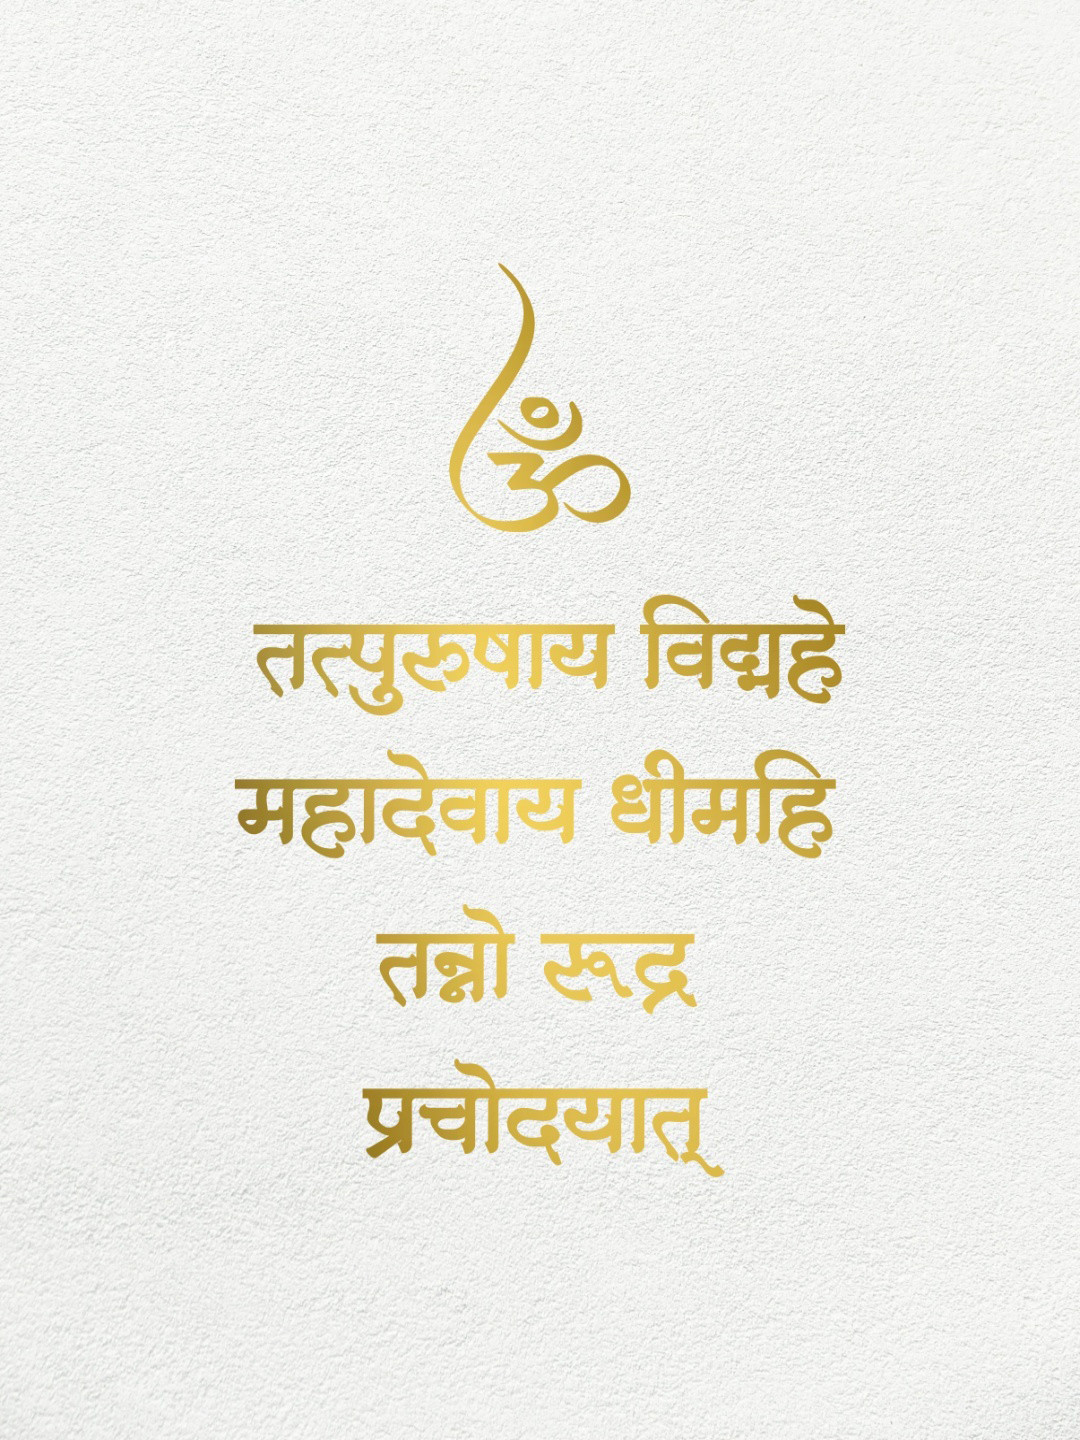 ॐ
तत्पुरुषाय विद्महे
महादेवाय धीमहि
तन्नो रूद्र
प्रचोदयात्